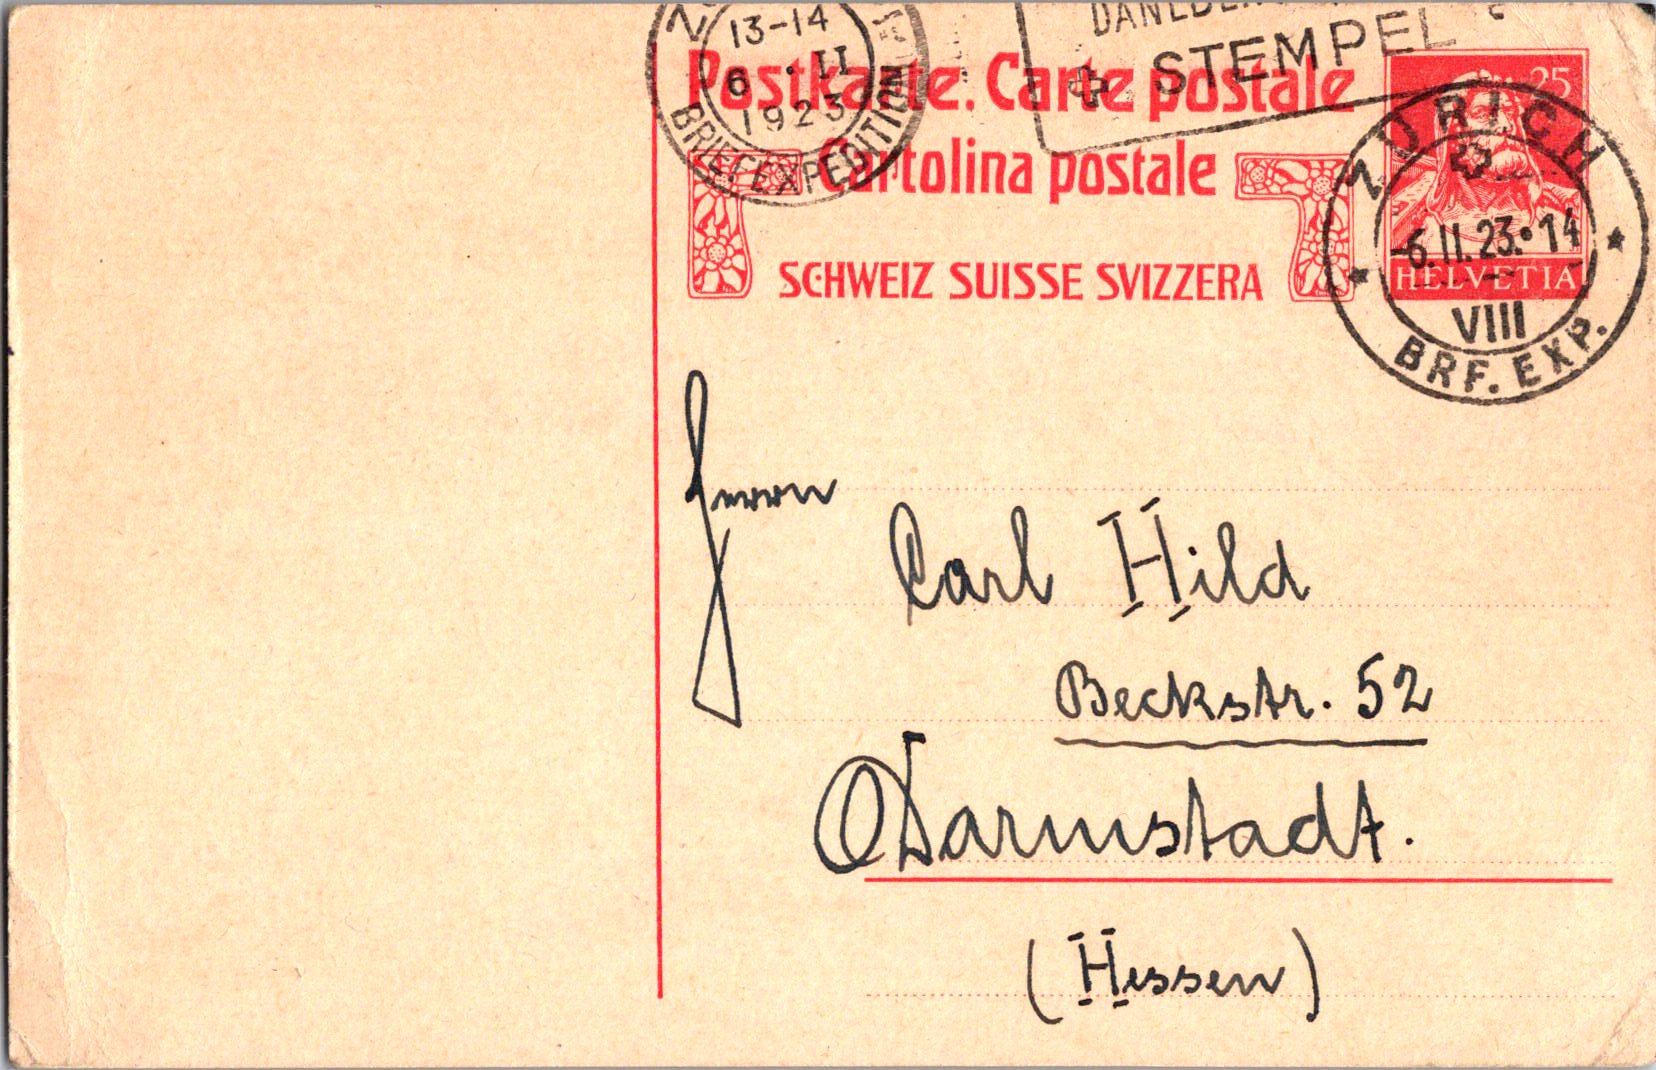 13-14
6 · II
1923
BRIEFEXPEDITION
STEMPEL
Postkarte. Carte postale
Cartolina postale
SCHWEIZ SUISSE SVIZZERA
25
HELVETIA
ZÜRICH
-6.II.23.·14
VIII
BRF. EXP.
Herrn
Carl Hild
Beckstr. 52
Darmstadt.
(Hessen)